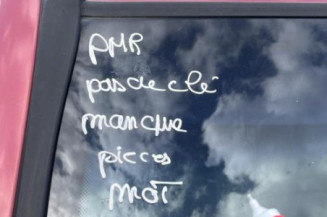 PMR
pas de clé
manque
pieces
mot